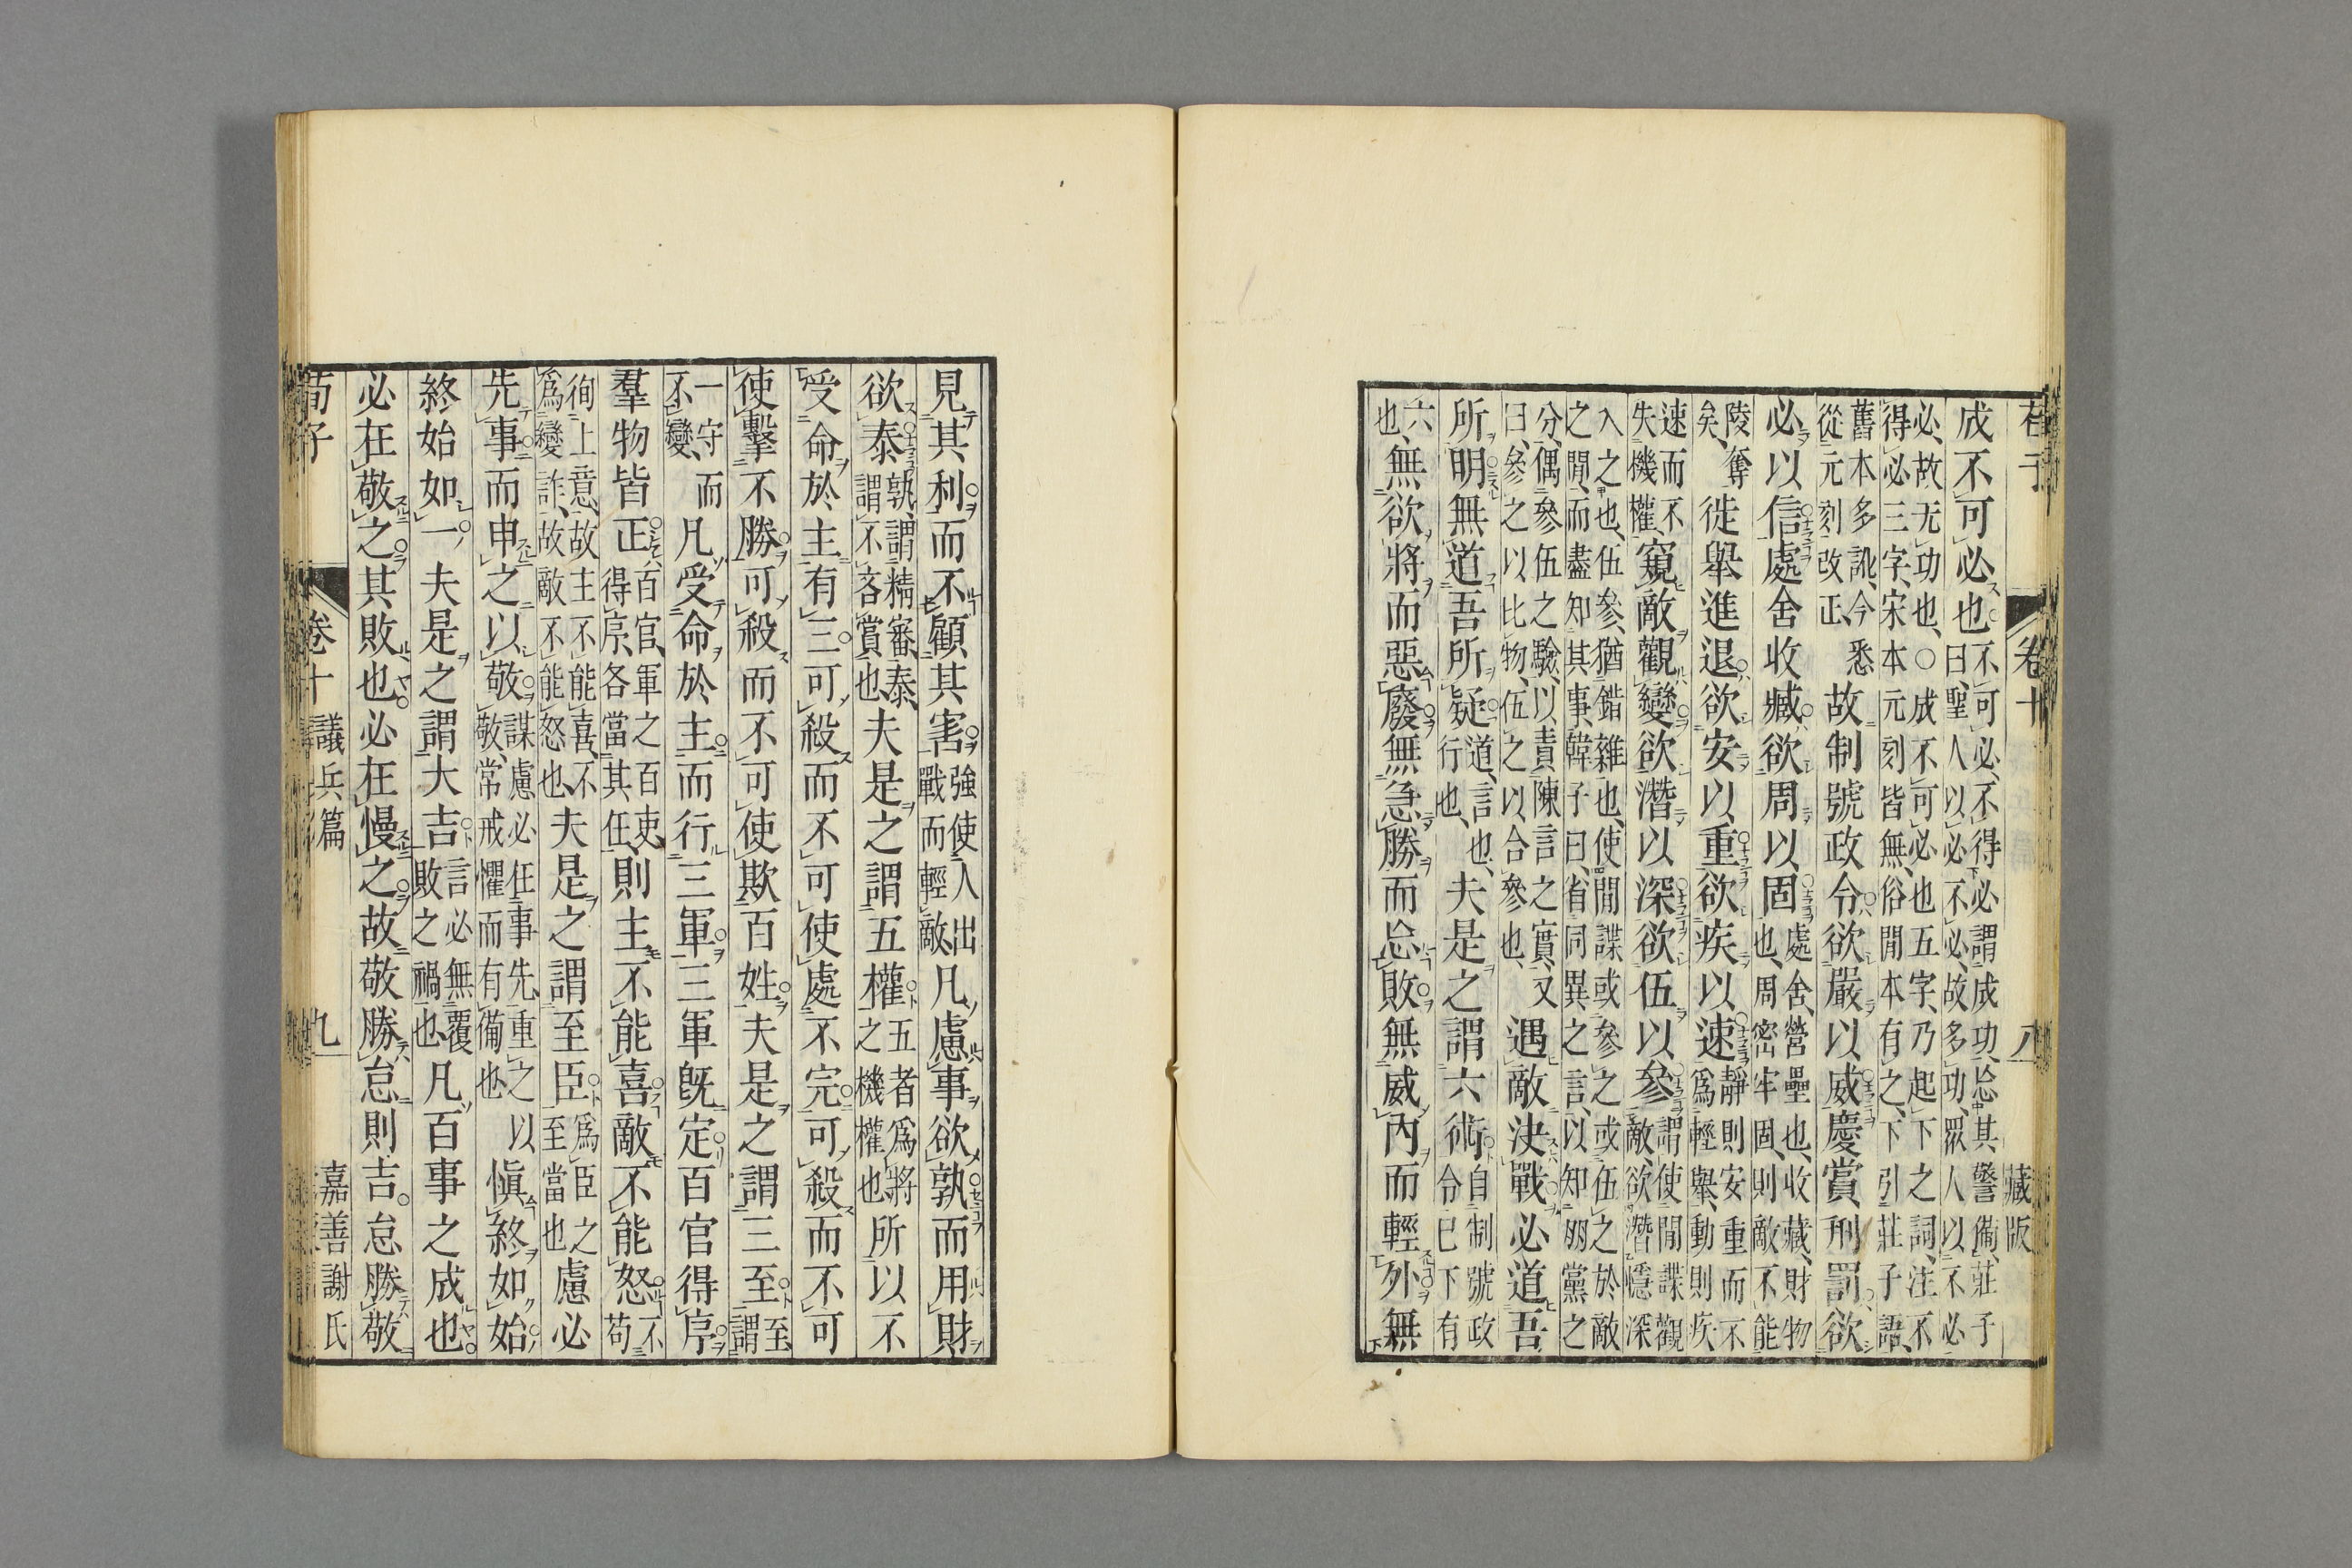 荀子 卷十 八 藏版
成不可必也不可必、不得必謂成功、忘其警備、莊子曰、聖人以必不必、故多功、眾人以不必
必、故无功也、○成不可必也五字、乃起下之詞、注不得必三字、宋本元刻皆無、俗閒本有之、下引莊子語、
舊本多訛、今悉從元刻改正故制號政令欲嚴以威慶賞刑罰欲
必以信處舍收臧欲周以固處舍、營壘也、收藏、財物也、周密牢固、則敵不能
陵奪矣、徙舉進退欲安以重欲疾以速靜則安重而不爲輕舉、動則疾
速而不失機權、窺敵觀變欲潛以深欲伍以參謂使閒諜觀敵、欲潛隱深
入之也、伍參、猶錯雜也、使閒諜或參之或伍之於敵之閒、而盡知其事、韓子曰、省同異之言、以知朋黨之
分、偶參伍之驗、以責陳言之實、又曰、參之以比物、伍之以合參也、遇敵決戰必道吾
所明無道吾所疑道、言也、行也、夫是之謂六術自制號政令已下有
六也、無欲將而惡廢無急勝而忘敗無威內而輕外無
見其利而不顧其害強使人出戰而輕敵、凡慮事欲孰而用財
欲泰孰、謂精審、泰、謂不吝賞也、夫是之謂五權五者爲將之機權也所以不
受命於主有三可殺而不可使處不完可殺而不可
使擊不勝可殺而不可使欺百姓夫是之謂三至至謂
一守而不變、凡受命於主而行三軍三軍旣定百官得序
羣物皆正百官、軍之百吏、得序、各當其任則主不能喜敵不能怒不苟
徇上意、故主不能喜、不爲變詐、故敵不能怒也夫是之謂至臣爲臣之至當也慮必
先事而申之以敬謀慮必在事先、重之以敬、常戒懼而有備也愼終如始
終始如一夫是之謂大吉言必無覆敗之禍也凡百事之成也
必在敬之其敗也必在慢之故敬勝怠則吉怠勝敬
荀子 卷十 議兵篇 九 嘉善謝氏